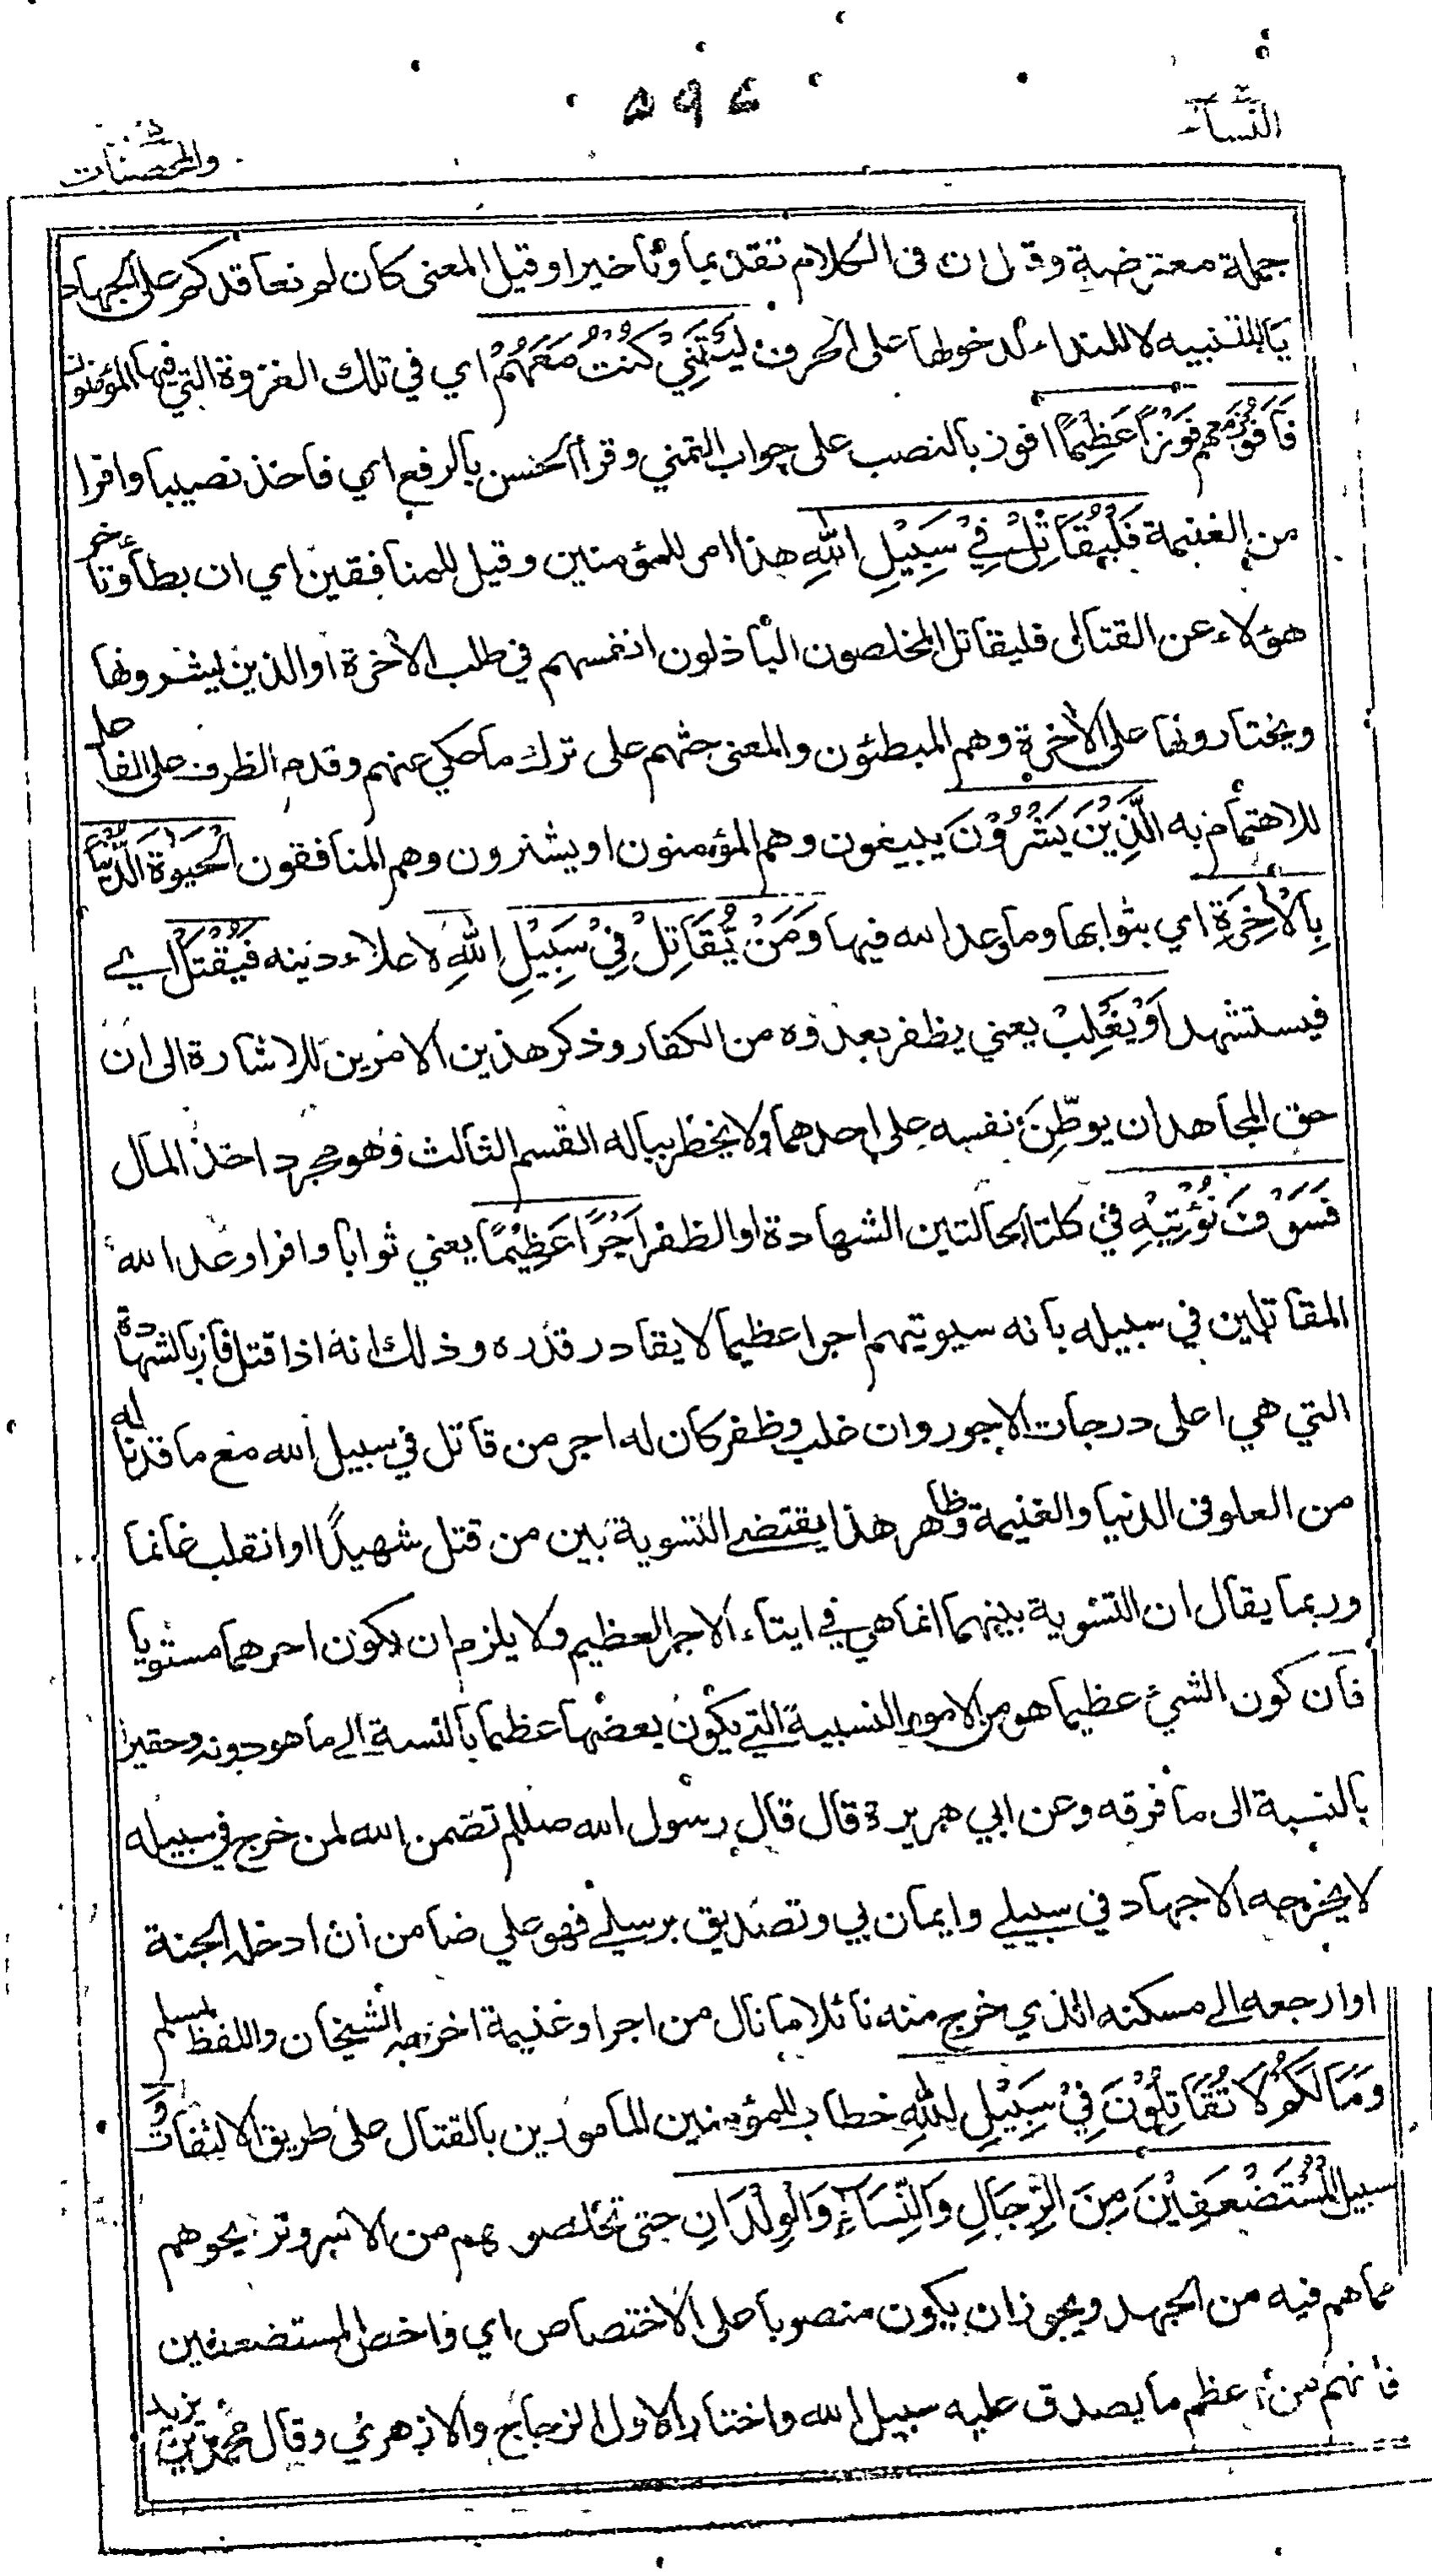 النساء
٥٩٤
والمحصنات
جملة معترضة وقيل ان في الكلام تقديما وتاخيرا وقيل المعنى كان لم نعاقدكم على الجهاد
يا للتنبيه لا للنداء لدخولها على الحرف لَيْتَنِيْ كُنْتُ مَعَهُمْ اي في تلك الغزوة التي فيها المؤمنون
فَاَفُوْزَ معهم فَوْزًا عَظِيْمًا افوز بالنصب على جواب التمني وقرأ الحسن بالرفع اي فاخذ نصيبا وافرا
من الغنيمة فَلْيُقَاتِلْ فِيْ سَبِيْلِ اللهِ هذا امر للمؤمنين وقيل للمنافقين اي ان بطأ وتأخر
هؤلاء عن القتال فليقاتل المخلصون الباذلون انفسهم في طلب الأخرة او الذين يشرونها
ويختارونها على الأخرة وهم المبطئون والمعنى حثهم على ترك ما حكي عنهم وقدم الظرف على الفاعل
للاهتمام به الَّذِيْنَ يَشْرُوْنَ يبيعون وهم المؤمنون او يشترون وهم المنافقون الْحَيٰوةَ الدُّنْيَا
بِالْاٰخِرَةِ اي بثوابها وما وعد الله فيها وَمَنْ يُّقَاتِلْ فِيْ سَبِيْلِ اللهِ لاعلاء دينه فَيُقْتَلْ اي
فيستشهد اَوْ يَغْلِبْ يعني يظفر بعدوه من الكفار وذكر هذين الامرين للاشارة الى ان
حق المجاهد ان يوطّن نفسه على احدهما ولا يخطر بباله القسم الثالث وهو مجرد اخذ المال
فَسَوْفَ نُؤْتِيْهِ في كلتا الحالتين الشهادة او الظفر اَجْرًا عَظِيْمًا يعني ثوابا وافرا وعد الله
المقاتلين في سبيله بانه سيوتيهم اجرا عظيما لا يقادر قدره وذلك انه اذا قتل فاز بالشهادة
التي هي اعلى درجات الاجور وان غلب وظفر كان له اجر من قاتل في سبيل الله مع ما قد ناله
من العلو في الدنيا والغنيمة وظاهر هذا يقتضي التسوية بين من قتل شهيدًا او انقلب غانما
وربما يقال ان التسوية بينهما انما هي في ايتاء الاجر العظيم ولا يلزم ان يكون اجرهما مستويا
فان كون الشيء عظيما هو من الامور النسبية التي يكون بعضها عظما بالنسبة الى ما هو دونه وحقيرا
بالنسبة الى ما فوقه وعن ابي هريرة قال قال رسول الله صللم تضمن الله لمن خرج في سبيله
لا يخرجه الا جهاد في سبيلي وايمان بي وتصديق برسلي فهو علي ضامن أن ادخله الجنة
او ارجعه الى مسكنه الذي خرج منه نائلا ما نال من اجر او غنيمة اخرجه الشيخان واللفظ لمسلم
وَمَا لَكُمْ لَا تُقَاتِلُوْنَ فِيْ سَبِيْلِ اللهِ خطاب للمؤمنين المامورين بالقتال على طريق الالتفات وَ
سبيل الْمُسْتَضْعَفِيْنَ مِنَ الرِّجَالِ وَالنِّسَاءِ وَالْوِلْدَانِ حتى تخلصوهم من الاسر وتريحوهم
مما هم فيه من الجهد ويجوز ان يكون منصوبا على الاختصاص اي واخص المستضعفين
فانهم من اعظم ما يصدق عليه سبيل الله واختار الاول الزجاج والازهري وقال محمد بن يزيد